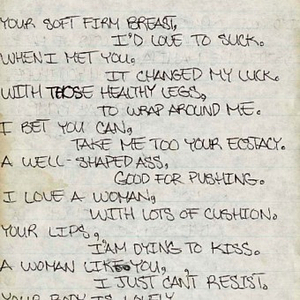 YOUR SOFT FIRM BREAST,
I'D LOVE TO SUCK.
WHEN I MET YOU.
IT CHANGED MY LUCK.
WITH THOSE HEALTHY LEGS,
TO WRAP AROUND ME.
I BET YOU CAN,
TAKE ME TOO YOUR ECSTACY.
A WELL-SHAPED ASS,
GOOD FOR PUSHING.
I LOVE A WOMAN,
WITH LOTS OF CUSHION.
YOUR LIPS,
I'AM DYING TO KISS.
A WOMAN LIKE YOU,
I JUST CAN'T RESIST.
YOUR BODY IS LOVELY